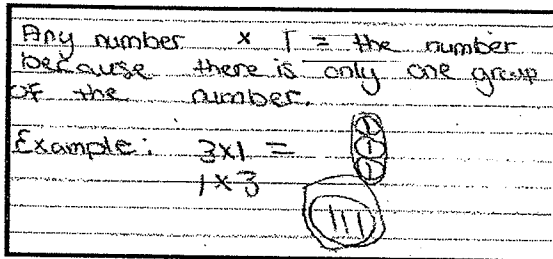 Any number x 1 = the number
because there is only one group
of the number.
Example: 3x1 =
1x3